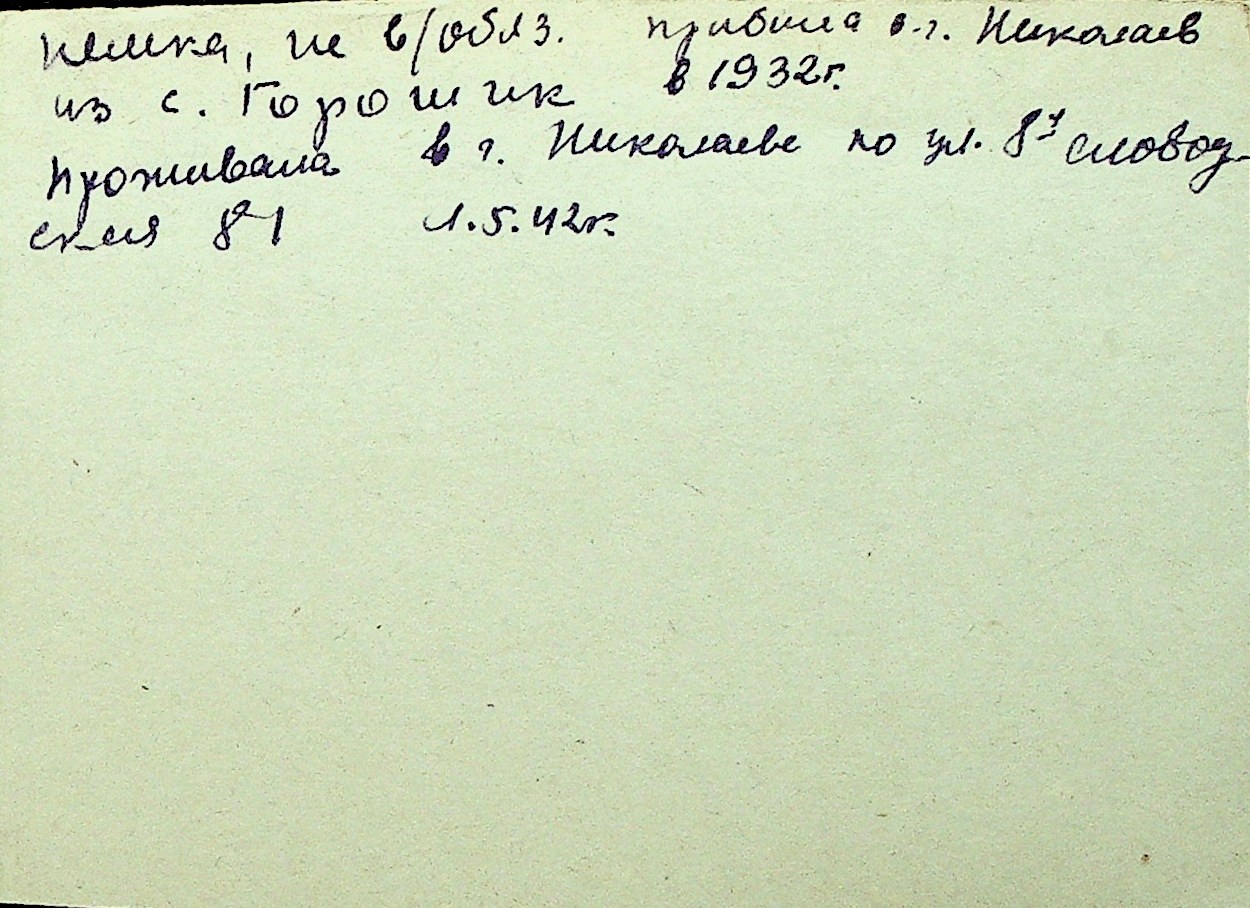 немка, не в/обяз. прибыла в г. Николаев
из с. Горошик в 1932г.
проживала в г. Николаеве по ул. 8я слобод-
ская 81 1.5.42г.